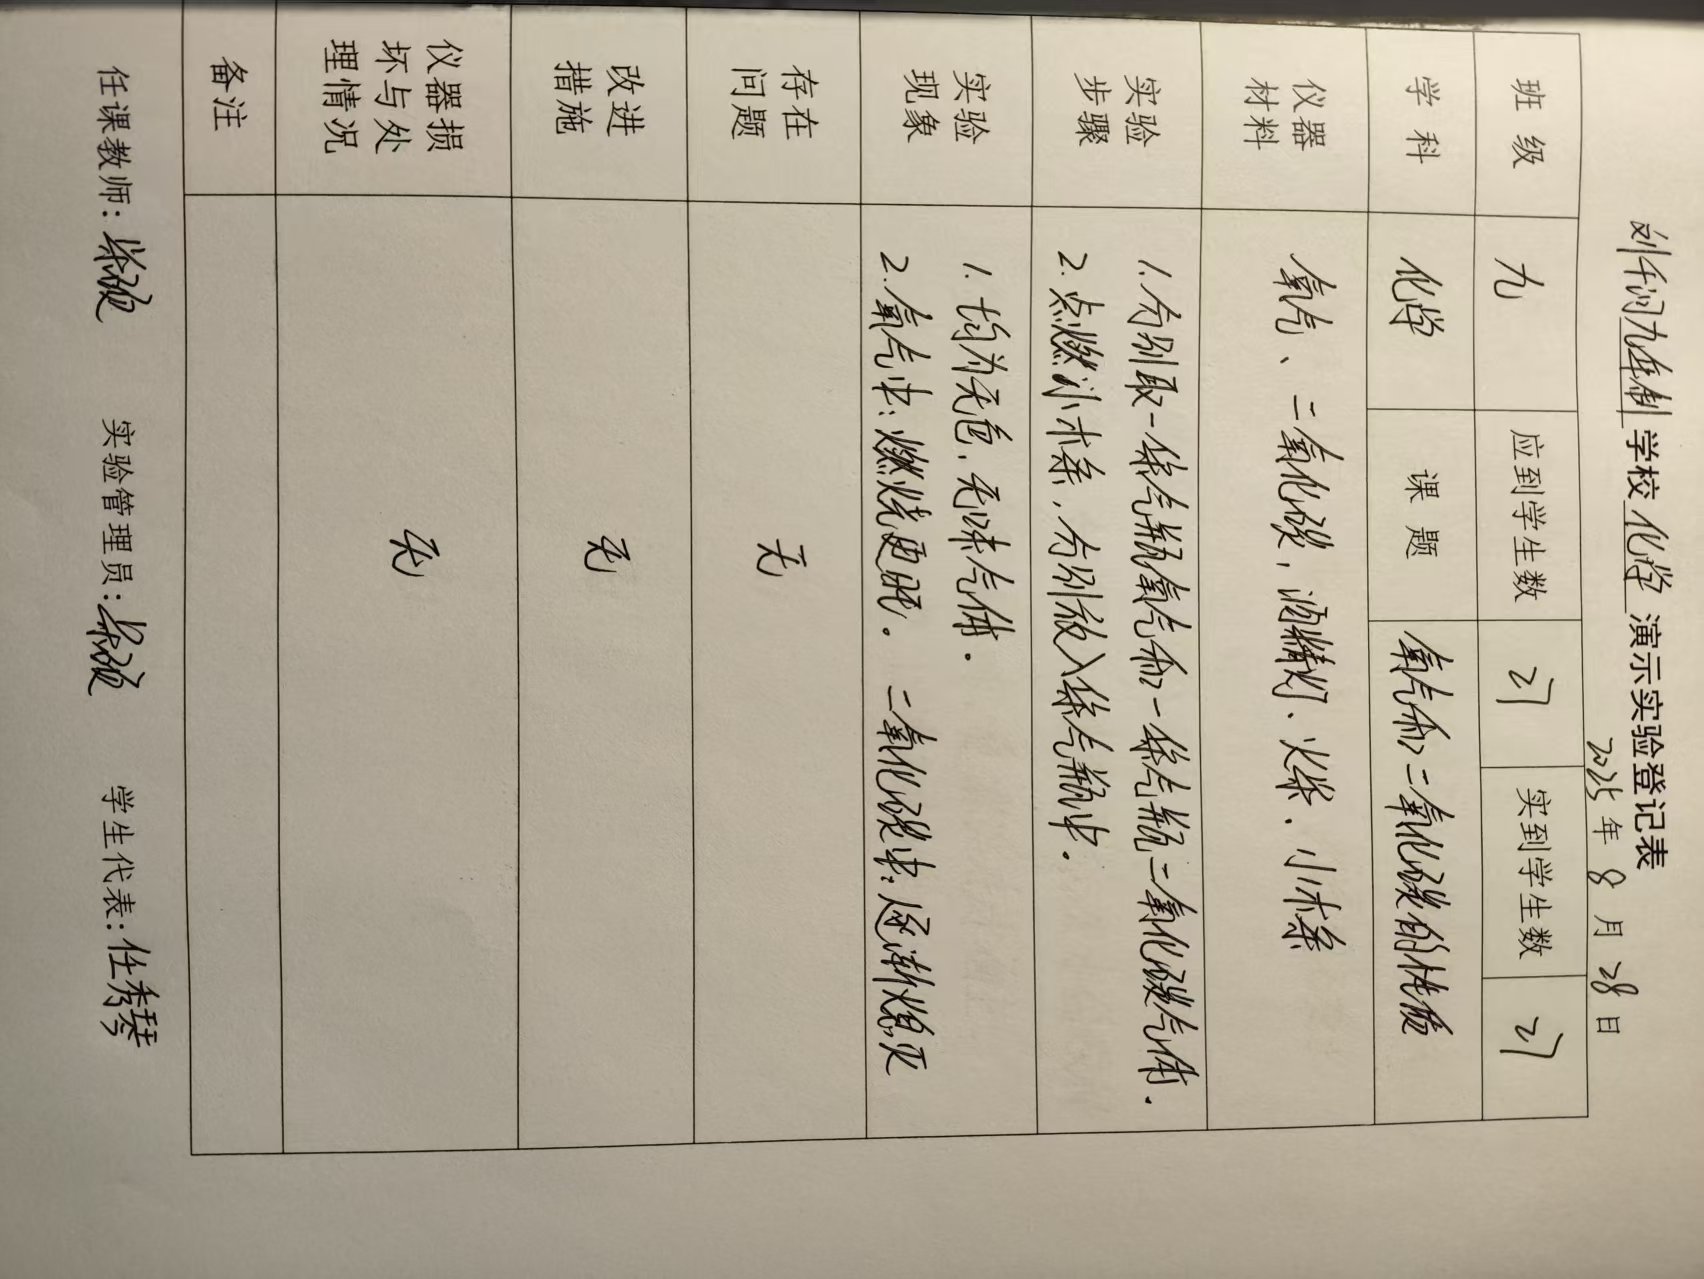 刘千河九年制学校化学演示实验登记表
2025年8月28日
班级 九 应到学生数 27 实到学生数 27
学科 化学 课题 氧气和二氧化碳的性质
仪器材料 氧气、二氧化碳,酒精灯、火柴、小木条
实验步骤 1.分别取一集气瓶氧气和一集气瓶二氧化碳气体.
2.点燃小木条,分别放入集气瓶中.
实验现象 1.均为无色,无味气体.
2.氧气中:燃烧更旺. 二氧化碳中:逐渐熄灭
存在问题 无
改进措施 无
仪器损坏与处理情况 无
备注
任课教师: 实验管理员: 学生代表:任秀琴